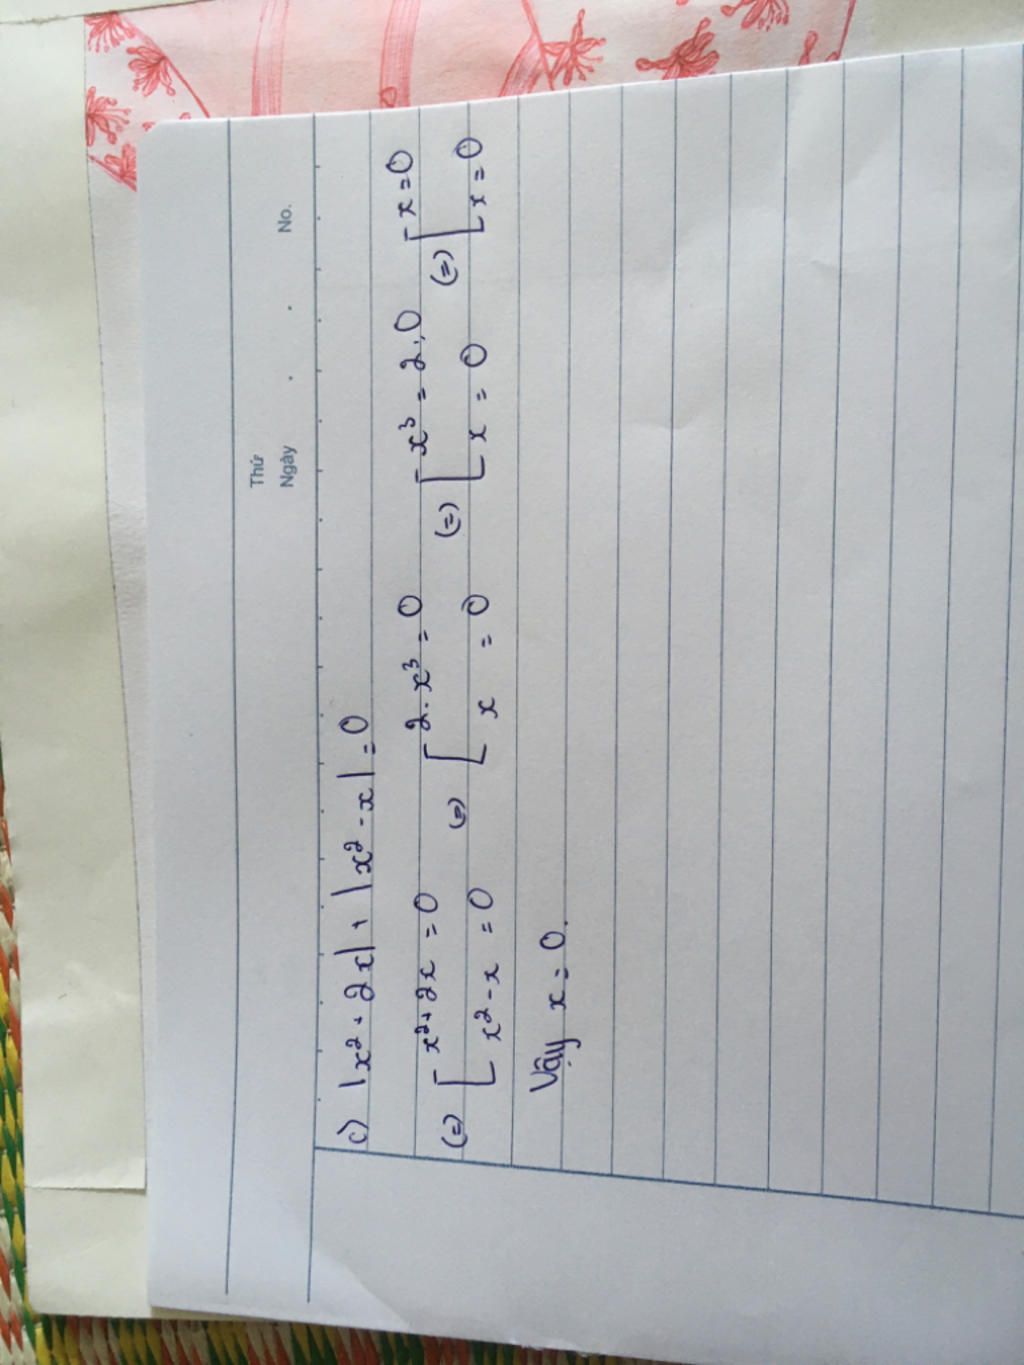 Thứ
Ngày . . No.
c) |x² + 2x| + |x² - x| = 0
(=) [ x² + 2x = 0 (=) [ 2.x³ = 0 (=) [ x³ = 2.0 (=) [ x = 0
[ x² - x = 0 [ x = 0 [ x = 0 [ x = 0
Vậy x = 0.